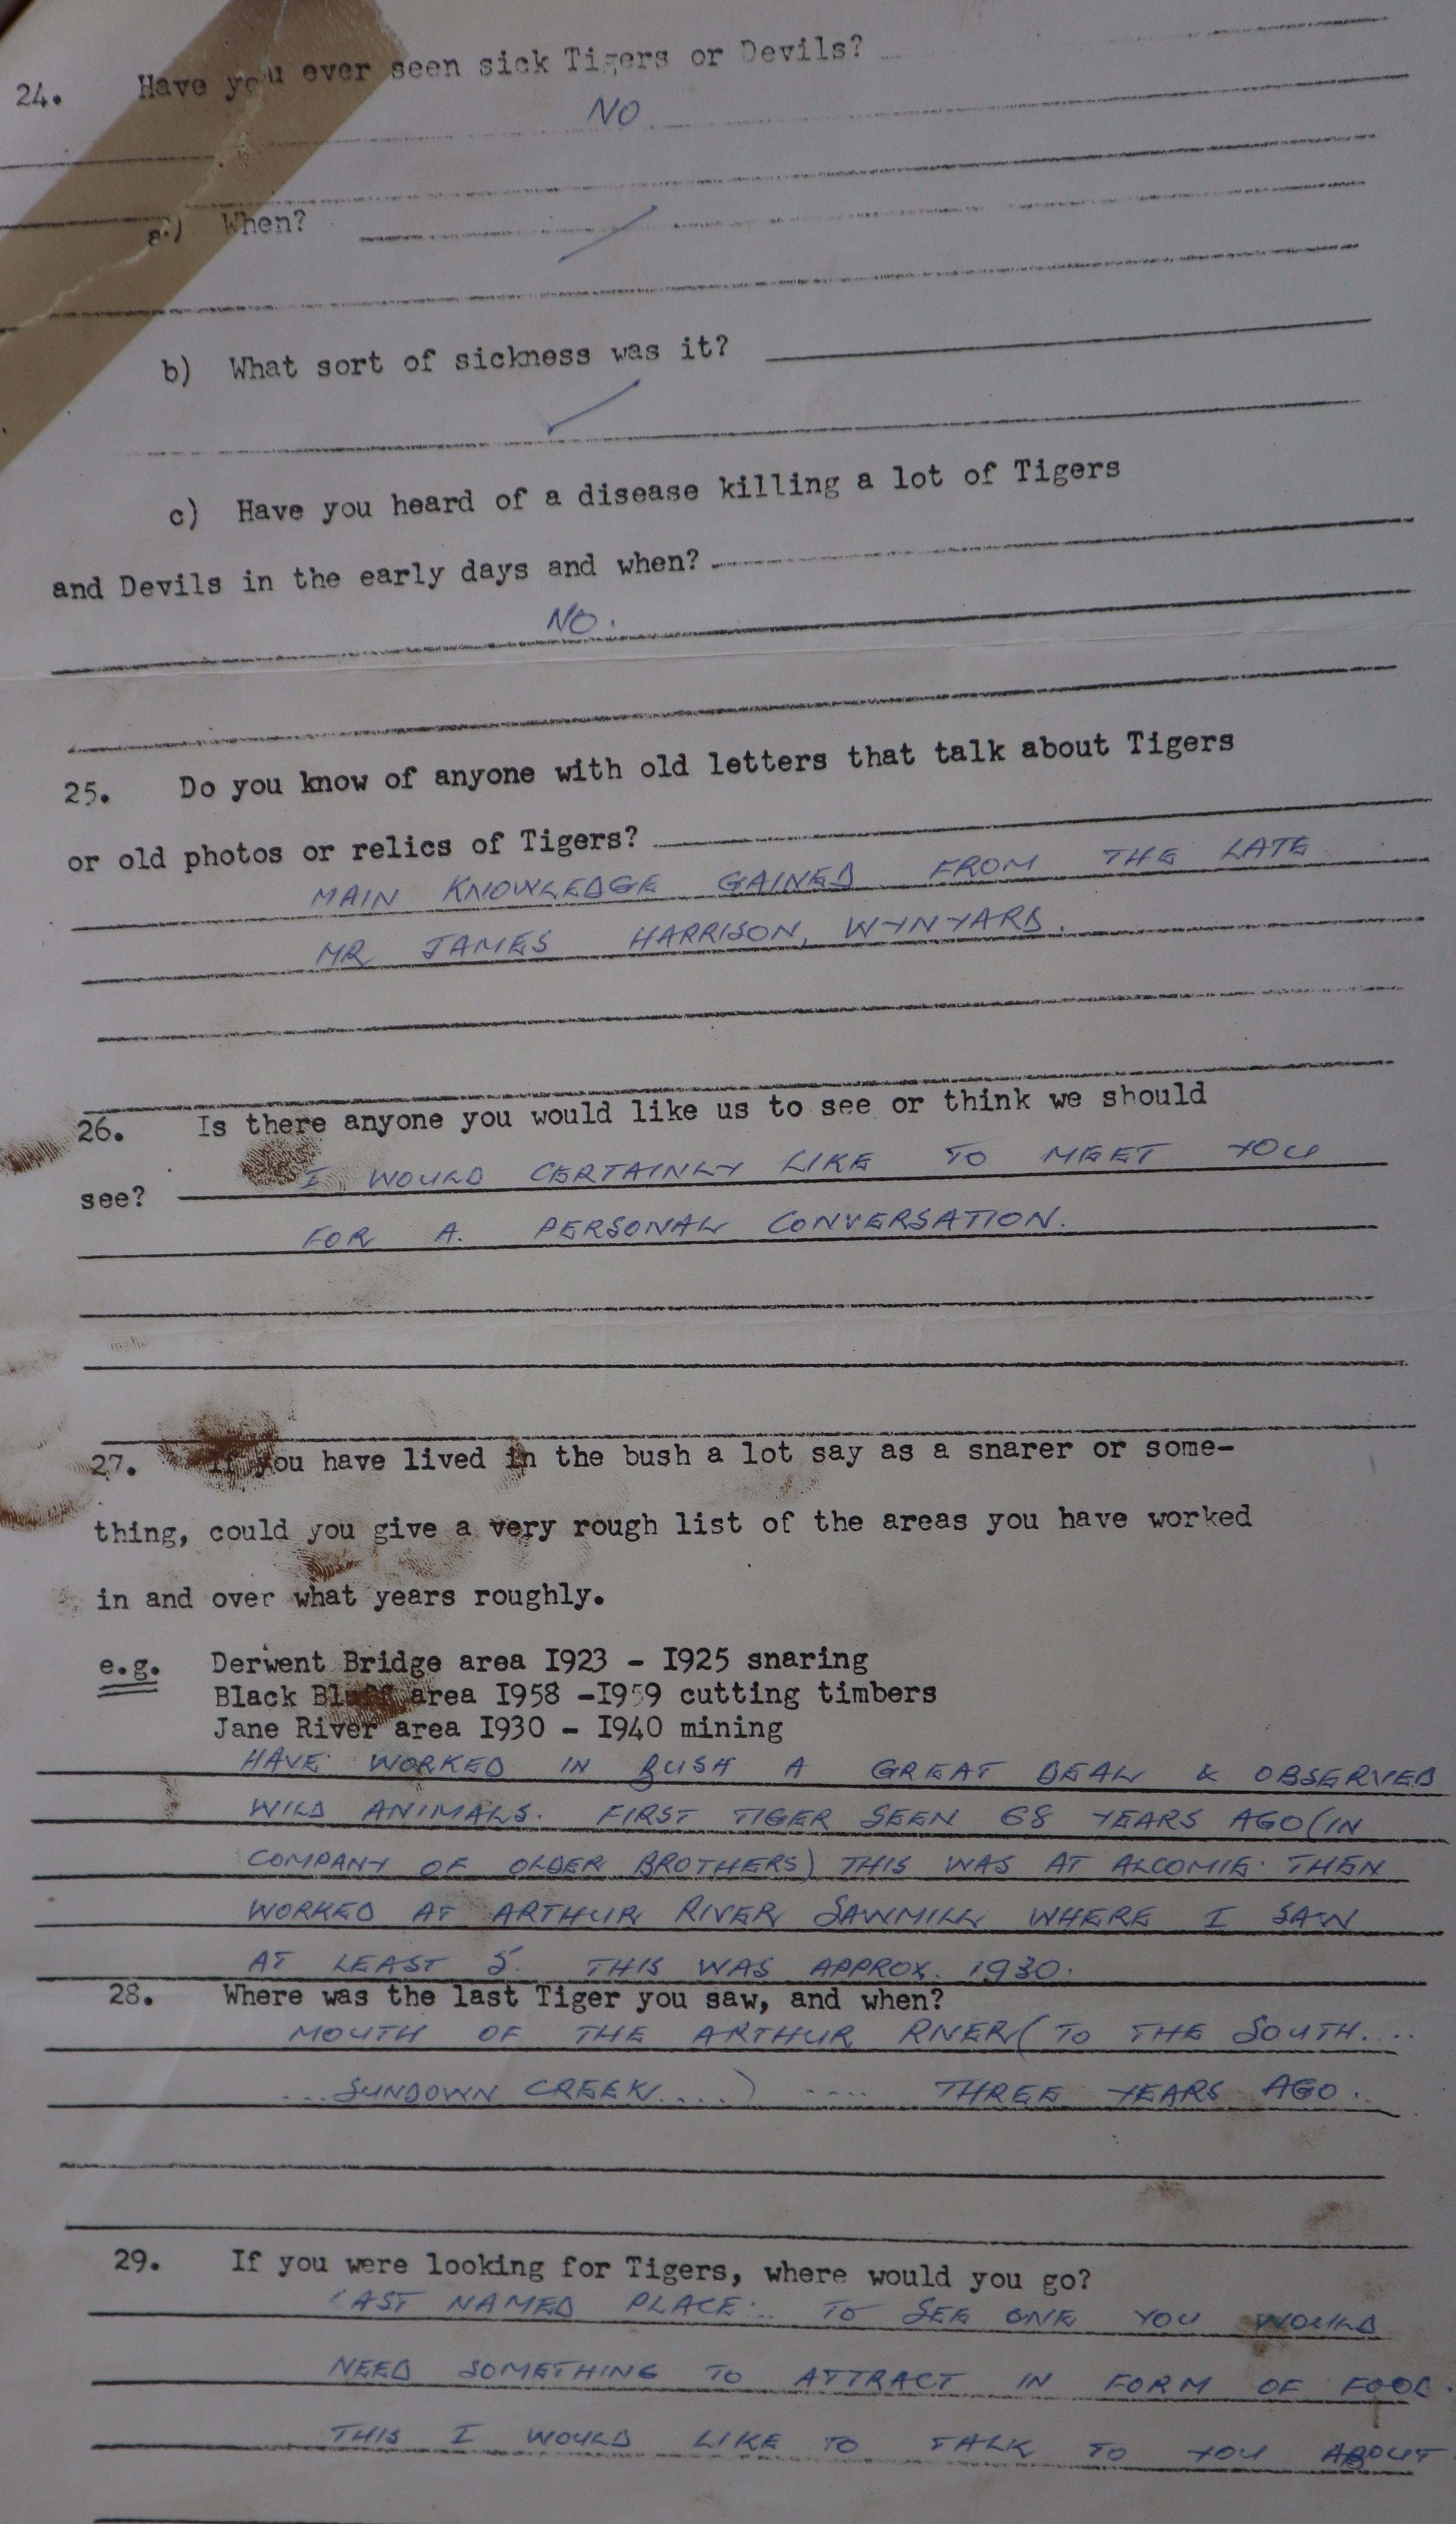 24. Have you ever seen sick Tigers or Devils?
NO
a) When?
b) What sort of sickness was it?
c) Have you heard of a disease killing a lot of Tigers
and Devils in the early days and when?
NO.
25. Do you know of anyone with old letters that talk about Tigers
or old photos or relics of Tigers?
MAIN KNOWLEDGE GAINED FROM THE LATE
MR JAMES HARRISON, WYNYARD.
26. Is there anyone you would like us to see or think we should
see? I WOULD CERTAINLY LIKE TO MEET YOU
FOR A. PERSONAL CONVERSATION.
27. If you have lived in the bush a lot say as a snarer or some-
thing, could you give a very rough list of the areas you have worked
in and over what years roughly.
e.g. Derwent Bridge area I923 - I925 snaring
Black Bluff area I958 -I959 cutting timbers
Jane River area I930 - I940 mining
HAVE WORKED IN BUSH A GREAT DEAL & OBSERVED
WILD ANIMALS. FIRST TIGER SEEN 68 YEARS AGO (IN
COMPANY OF OLDER BROTHERS) THIS WAS AT ALCOMIE. THEN
WORKED AT ARTHUR RIVER SAWMILL WHERE I SAW
AT LEAST 5. THIS WAS APPROX. 1930.
28. Where was the last Tiger you saw, and when?
MOUTH OF THE ARTHUR RIVER (TO THE SOUTH....
...SUNDOWN CREEK....) .... THREE YEARS AGO.
29. If you were looking for Tigers, where would you go?
LAST NAMED PLACE... TO SEE ONE YOU WOULD
NEED SOMETHING TO ATTRACT IN FORM OF FOOD.
THIS I WOULD LIKE TO TALK TO YOU ABOUT